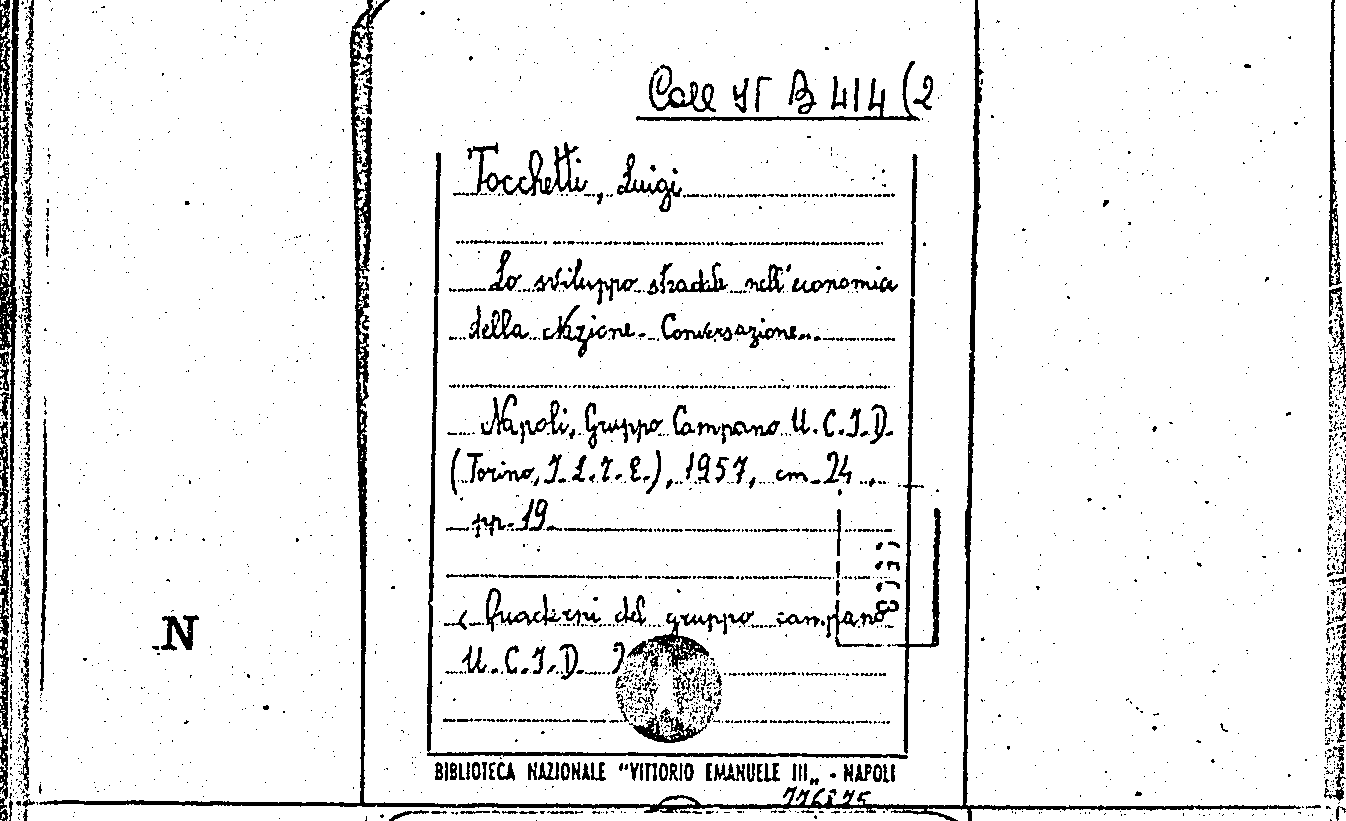 Coll B 414 (2
Tocchetti, Luigi
Lo sviluppo stradale nell'economia
della Nazione. Conversazione...
Napoli, Gruppo Campano U.C.I.D.
(Torino, I.L.T.E.), 1957, cm. 24,
pp. 19
( Quaderni del gruppo campano
N
U.C.I.D.
BIBLIOTECA NAZIONALE "VITTORIO EMANUELE III„ - NAPOLI